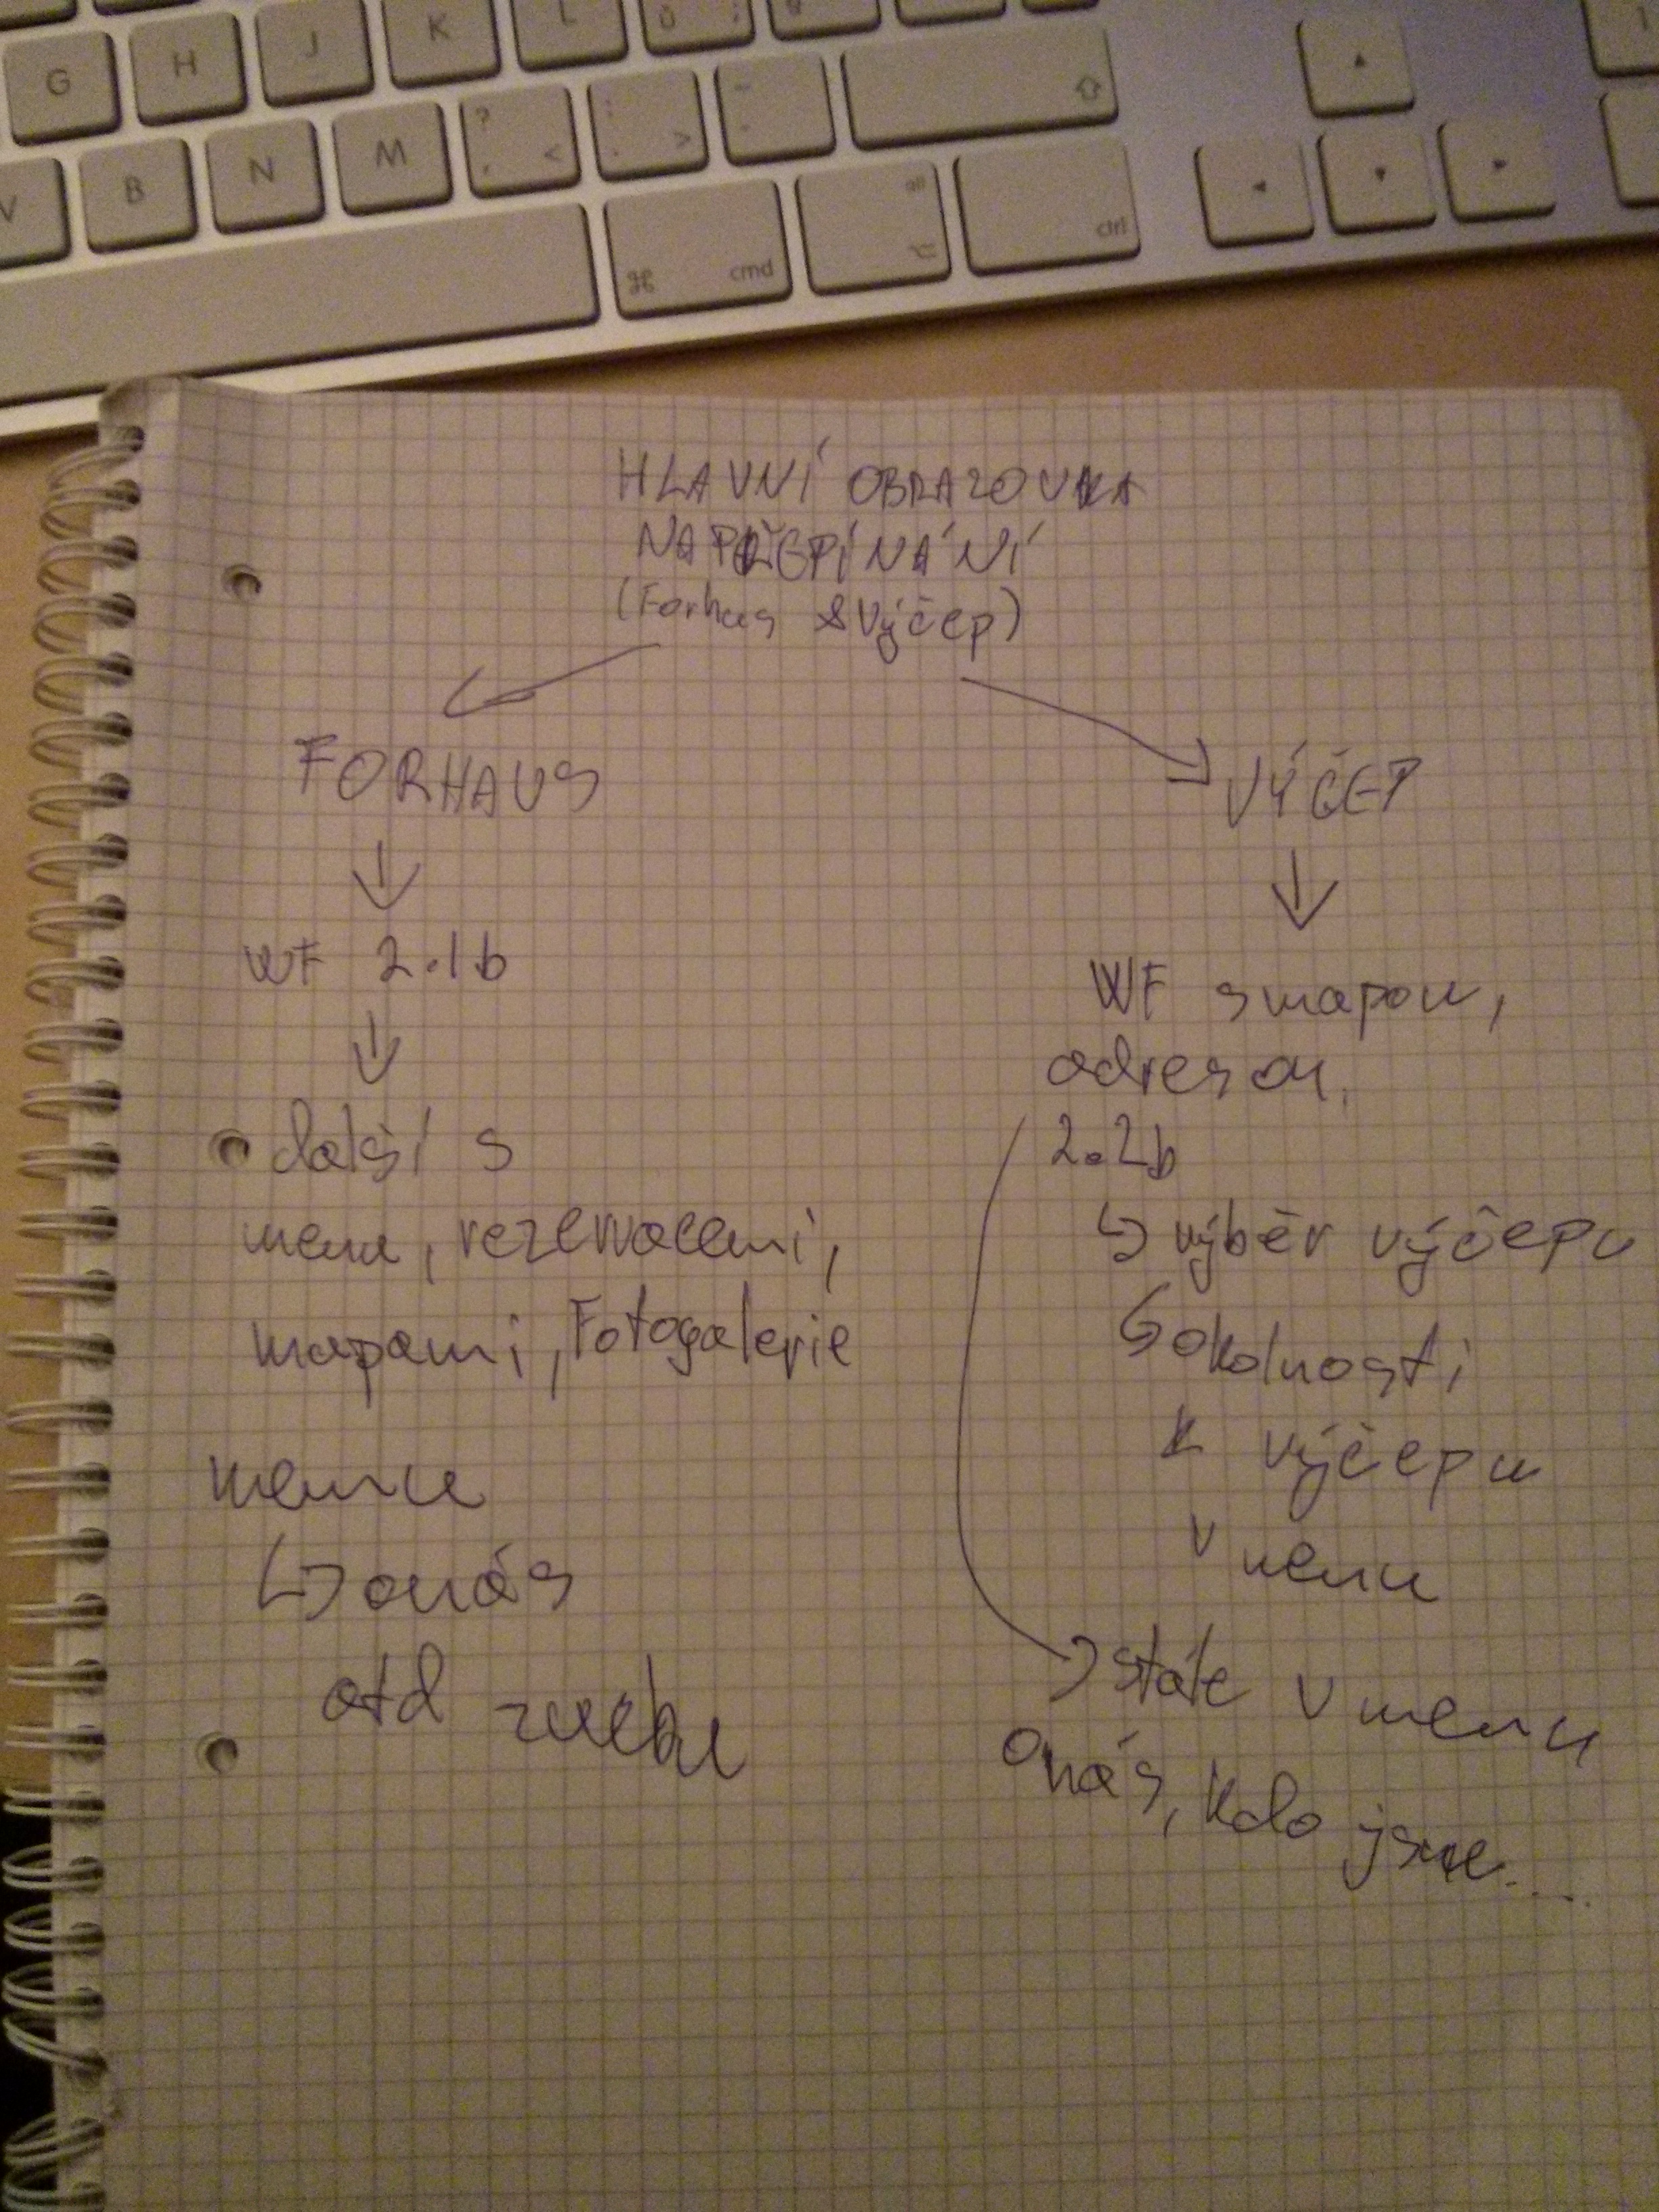 G H J K L ů ;
V B N M ? , < : . > - 
⌘ cmd alt ⌥ ctrl
HLAVNÍ OBRAZOVKA
NA PŘEPÍNÁNÍ
(Forhaus & Výčep)
FORHAUS
VÝČEP
WF 2.1b
další s
menu, rezervacemi,
mapami, Fotogalerie
menu
↳ o nás
atd
WF s mapou,
adresou.
2.2b
↳ výběr výčepu
↳ okolnosti
k výčepu
v menu
→ stále v menu
o nás, kdo jsme....